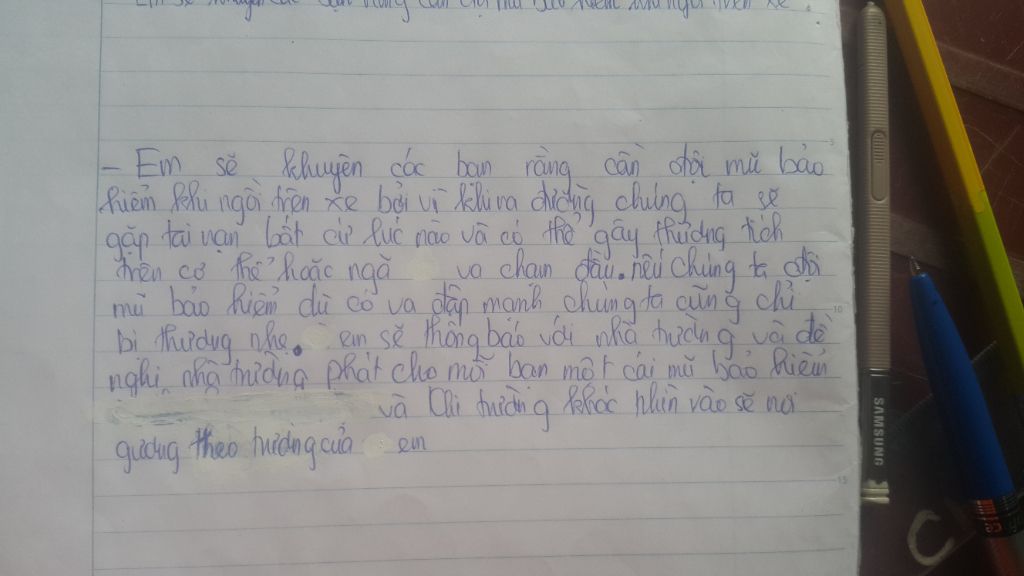 Em sẽ khuyên các bạn rằng cần đội mũ bảo hiểm khi ngồi trên xe.
- Em sẽ khuyên các bạn rằng cần đội mũ bảo
hiểm khi ngồi trên xe bởi vì khi ra đường chúng ta sẽ
gặp tai nạn bất cứ lúc nào và có thể gây thương tích
trên cơ thể hoặc ngã va chạm đầu. nếu chúng ta đội
mũ bảo hiểm dù có va đập mạnh chúng ta cũng chỉ
bị thương nhẹ. em sẽ thông báo với nhà trường và đề
nghị nhà trường phát cho mỗi bạn một cái mũ bảo hiểm
và trường khác nhìn vào sẽ noi
gương theo trường của em
SAMSUNG